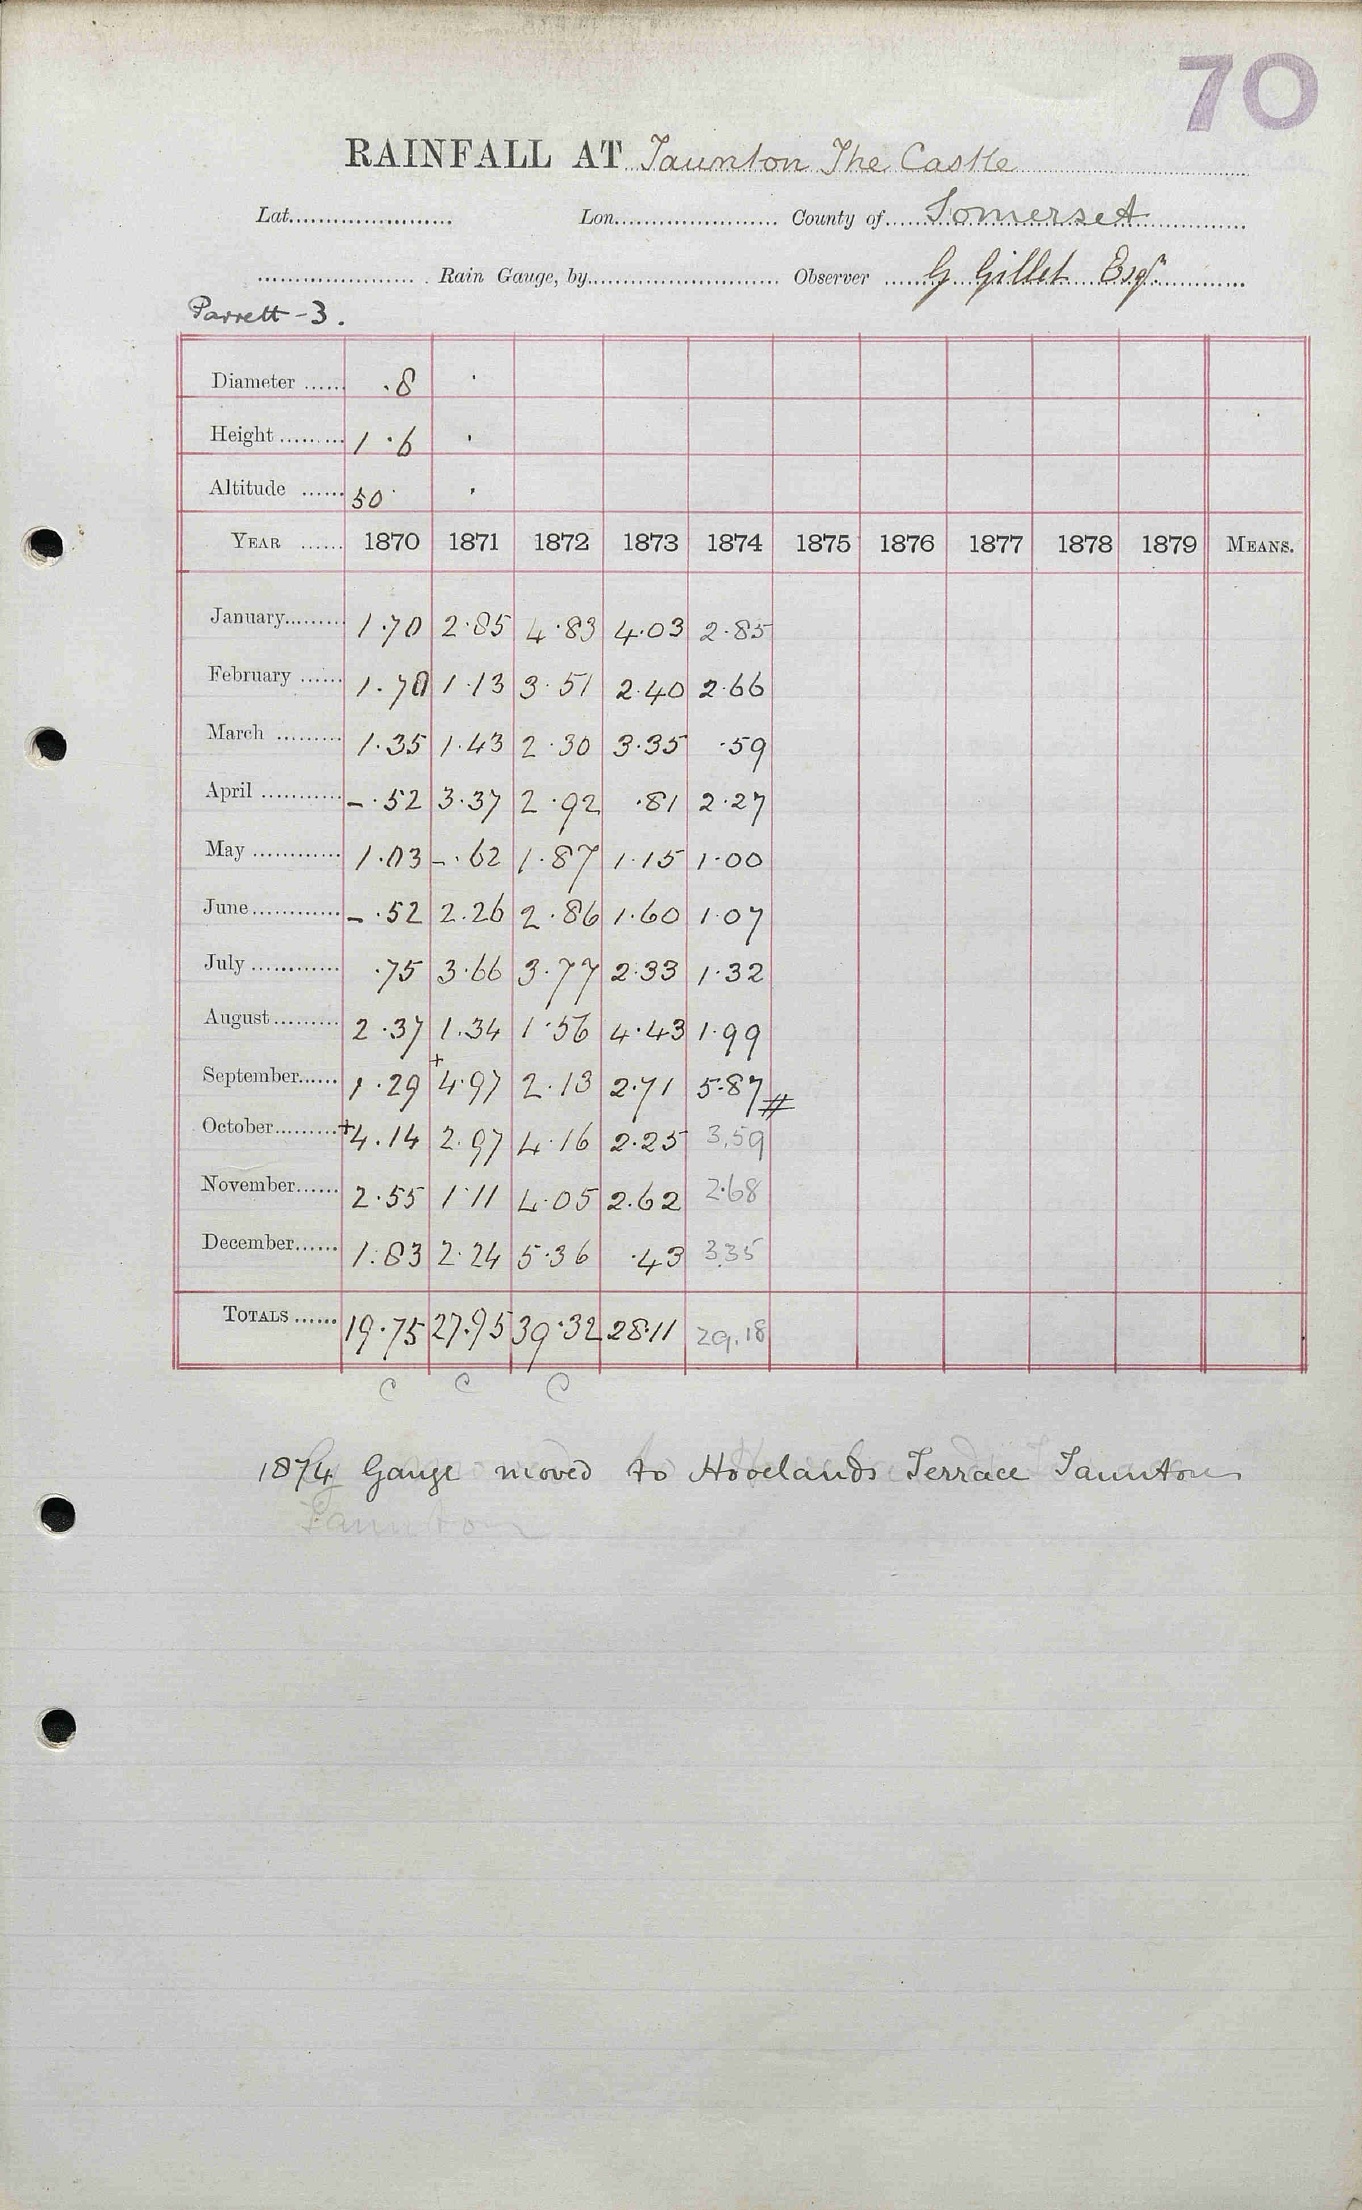 70
RAINFALL AT Taunton The Castle
Lat. Lon. County of Somerset
Rain Gauge, by Observer G Gillet Esqr
Parrett - 3.
Diameter ...... .8 '
Height ......... 1 . 6 '
Altitude ...... 50 '
YEAR ...... 1870 1871 1872 1873 1874 1875 1876 1877 1878 1879 MEANS.
January......... 1.70 2.85 4.83 4.03 2.85
February ...... 1.70 1.13 3.51 2.40 2.66
March ......... 1.35 1.43 2.30 3.35 .59
April ........... -.52 3.37 2.92 .81 2.27
May ............ 1.03 -.62 1.87 1.15 1.00
June............ -.52 2.26 2.86 1.60 1.07
July ............ .75 3.66 3.77 2.33 1.32
August ......... 2.37 1.34 1.56 4.43 1.99
September...... 1.29 +4.97 2.13 2.71 5.87 #
October......... +4.14 2.97 4.16 2.25 3.59
November...... 2.55 1.11 4.05 2.62 2.68
December...... 1.83 2.24 5.36 .43 3.35
TOTALS ...... 19.75 27.95 39.32 28.11 29.18
C C C
1874 Gauge moved to Hovelands Terrace Taunton
Taunton